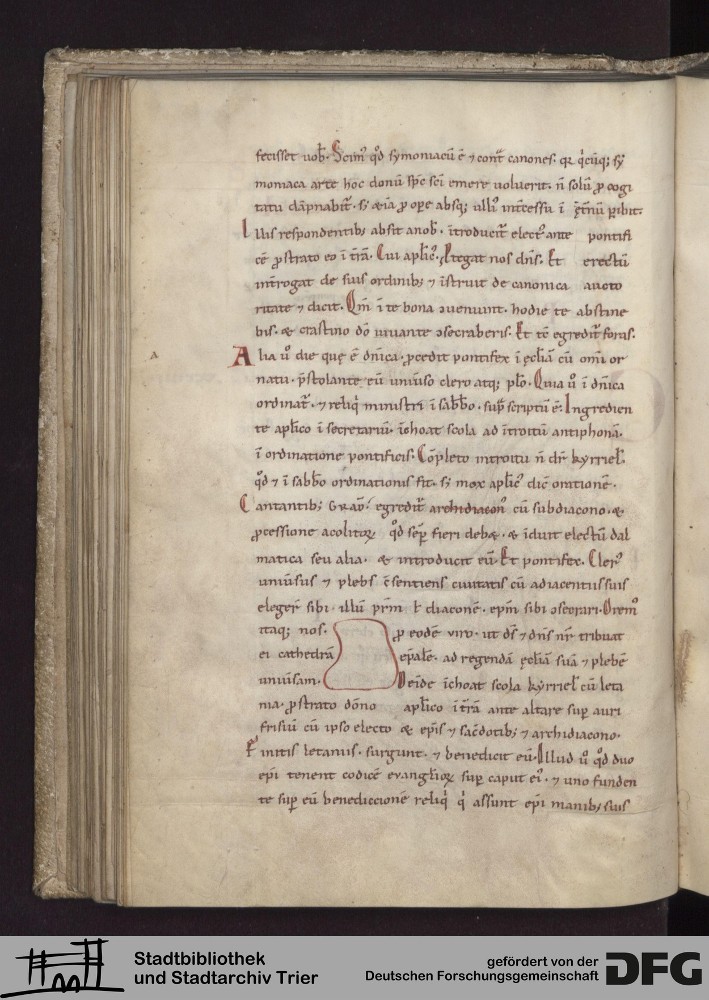 fecisset uob̄. Scim᷒ qđ symoniacū ē ⁊ cont̄ canones. q̄ q̇cūq; sy
moniaca arte hoc donū sp̄c sc̄i emere uoluerit. n̄ solū ꝓ cogi
tatu dāpnabit᷒. s; & iā ꝓ oꝑe absq; ulli᷒ int̄cessu ī ęt̄nū ꝑibit.
Illis respondentib; absit a nob̄. introducit᷒ elect᷒ ante pontifi
cē ꝓstrato eo ī t̄rā. Cui aplic᷒. Ꝓtegat nos dn̄s. Et erectū
int̄rogat de suis ordinib; ⁊ īstruit de canonica aucto
ritate ⁊ dicit. Qm̄ ī te bona ↄuenunt. hodie te abstine
bis. & crastino dō uiuante ↄsecraberis. Et tē egredit᷒ foras.
Alia u͛ die quę ē dn̄ica. ꝓcedit pontifex ī ęcl̄iā cū om̄i or
natu. p̄stolante eū uniuso clero atq; plō. Quia u͛ ī dn̄ica
ordinat᷒. ⁊ reliq̇ ministri ī sabb̄o. sup̄ scriptū ē. Ingredien
te aplico ī secretariū. īchoat scola ad ītroitū antiphonā.
ī ordinatione pontificis. Cōpleto introitu n̄ dr̄ kyrriel̄.
qđ ⁊ ī sabb̄o ordinationis fit. s; mox aplic᷒ dic̄ orationē.
Cantantib; GRAD̄. egredit᷒ archidiacon᷒ cū subdiacono. &
ꝓcessione acolitoꝝ. qđ sēp fieri deb&. & īduit electū dal
matica seu alia. & introducit eū. Et pontifex. Cler᷒
uniūsus ⁊ plebs c̄sentiens ciuitatis cū adiacentiis suis
eleger̄ sibi. illū pr̄m ł diaconē. ep̄m sibi ↄsecrari. Orem᷒
itaq; nos. ꝓ eodē uiro. ut dſ̄ ⁊ dn̄s nr̄ tribuat
ei cathedrā ep̄alē. ad regendā ęcl̄iā suā ⁊ plebē
uniūsam. Deīde īchoat scola kyrriel̄ cū leta
nia. ꝓstrato dōno aplico ī t̄rā ante altare suꝑ auri
frisiū cū ipso electo & ep̄is ⁊ sac̄dotib; ⁊ archidiacono.
Finitis letaniis. surgunt. ⁊ benedicit eū. Illud u͛ qđ duo
ep̄i tenent codicē euanglioꝝ suꝑ caput ei᷒. ⁊ uno funden
te suꝑ eū benediccionē reliq̇ q̇ assunt ep̄i manib; suis
Stadtbibliothek
und Stadtarchiv Trier
gefördert von der
Deutschen Forschungsgemeinschaft
DFG